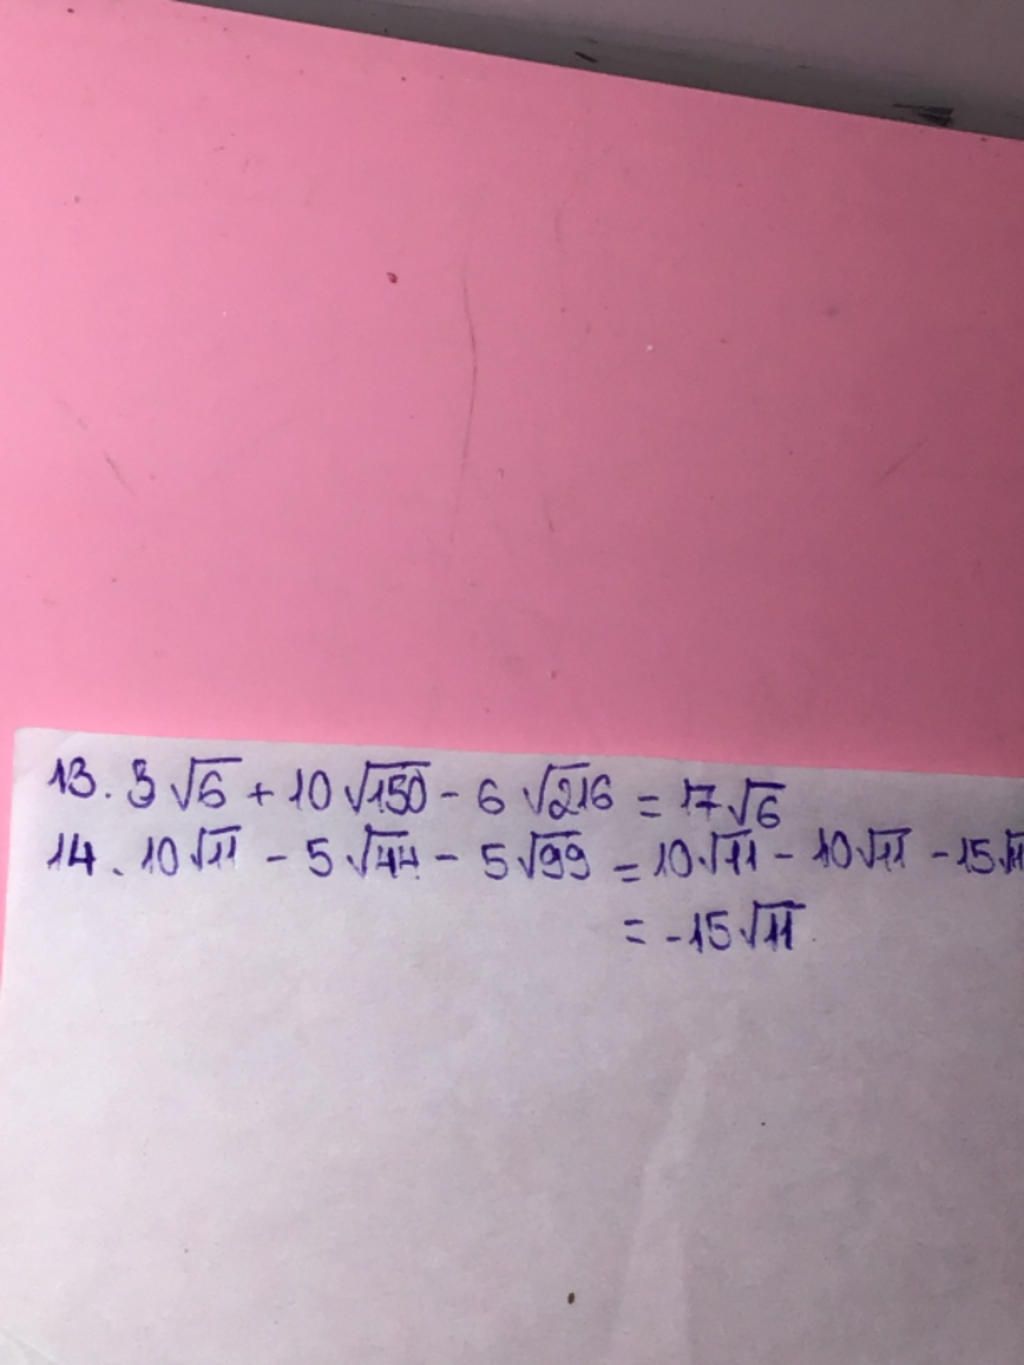 13. 3√6 + 10√150 - 6√216 = 17√6
14. 10√11 - 5√44 - 5√99 = 10√11 - 10√11 - 15√11
= -15√11